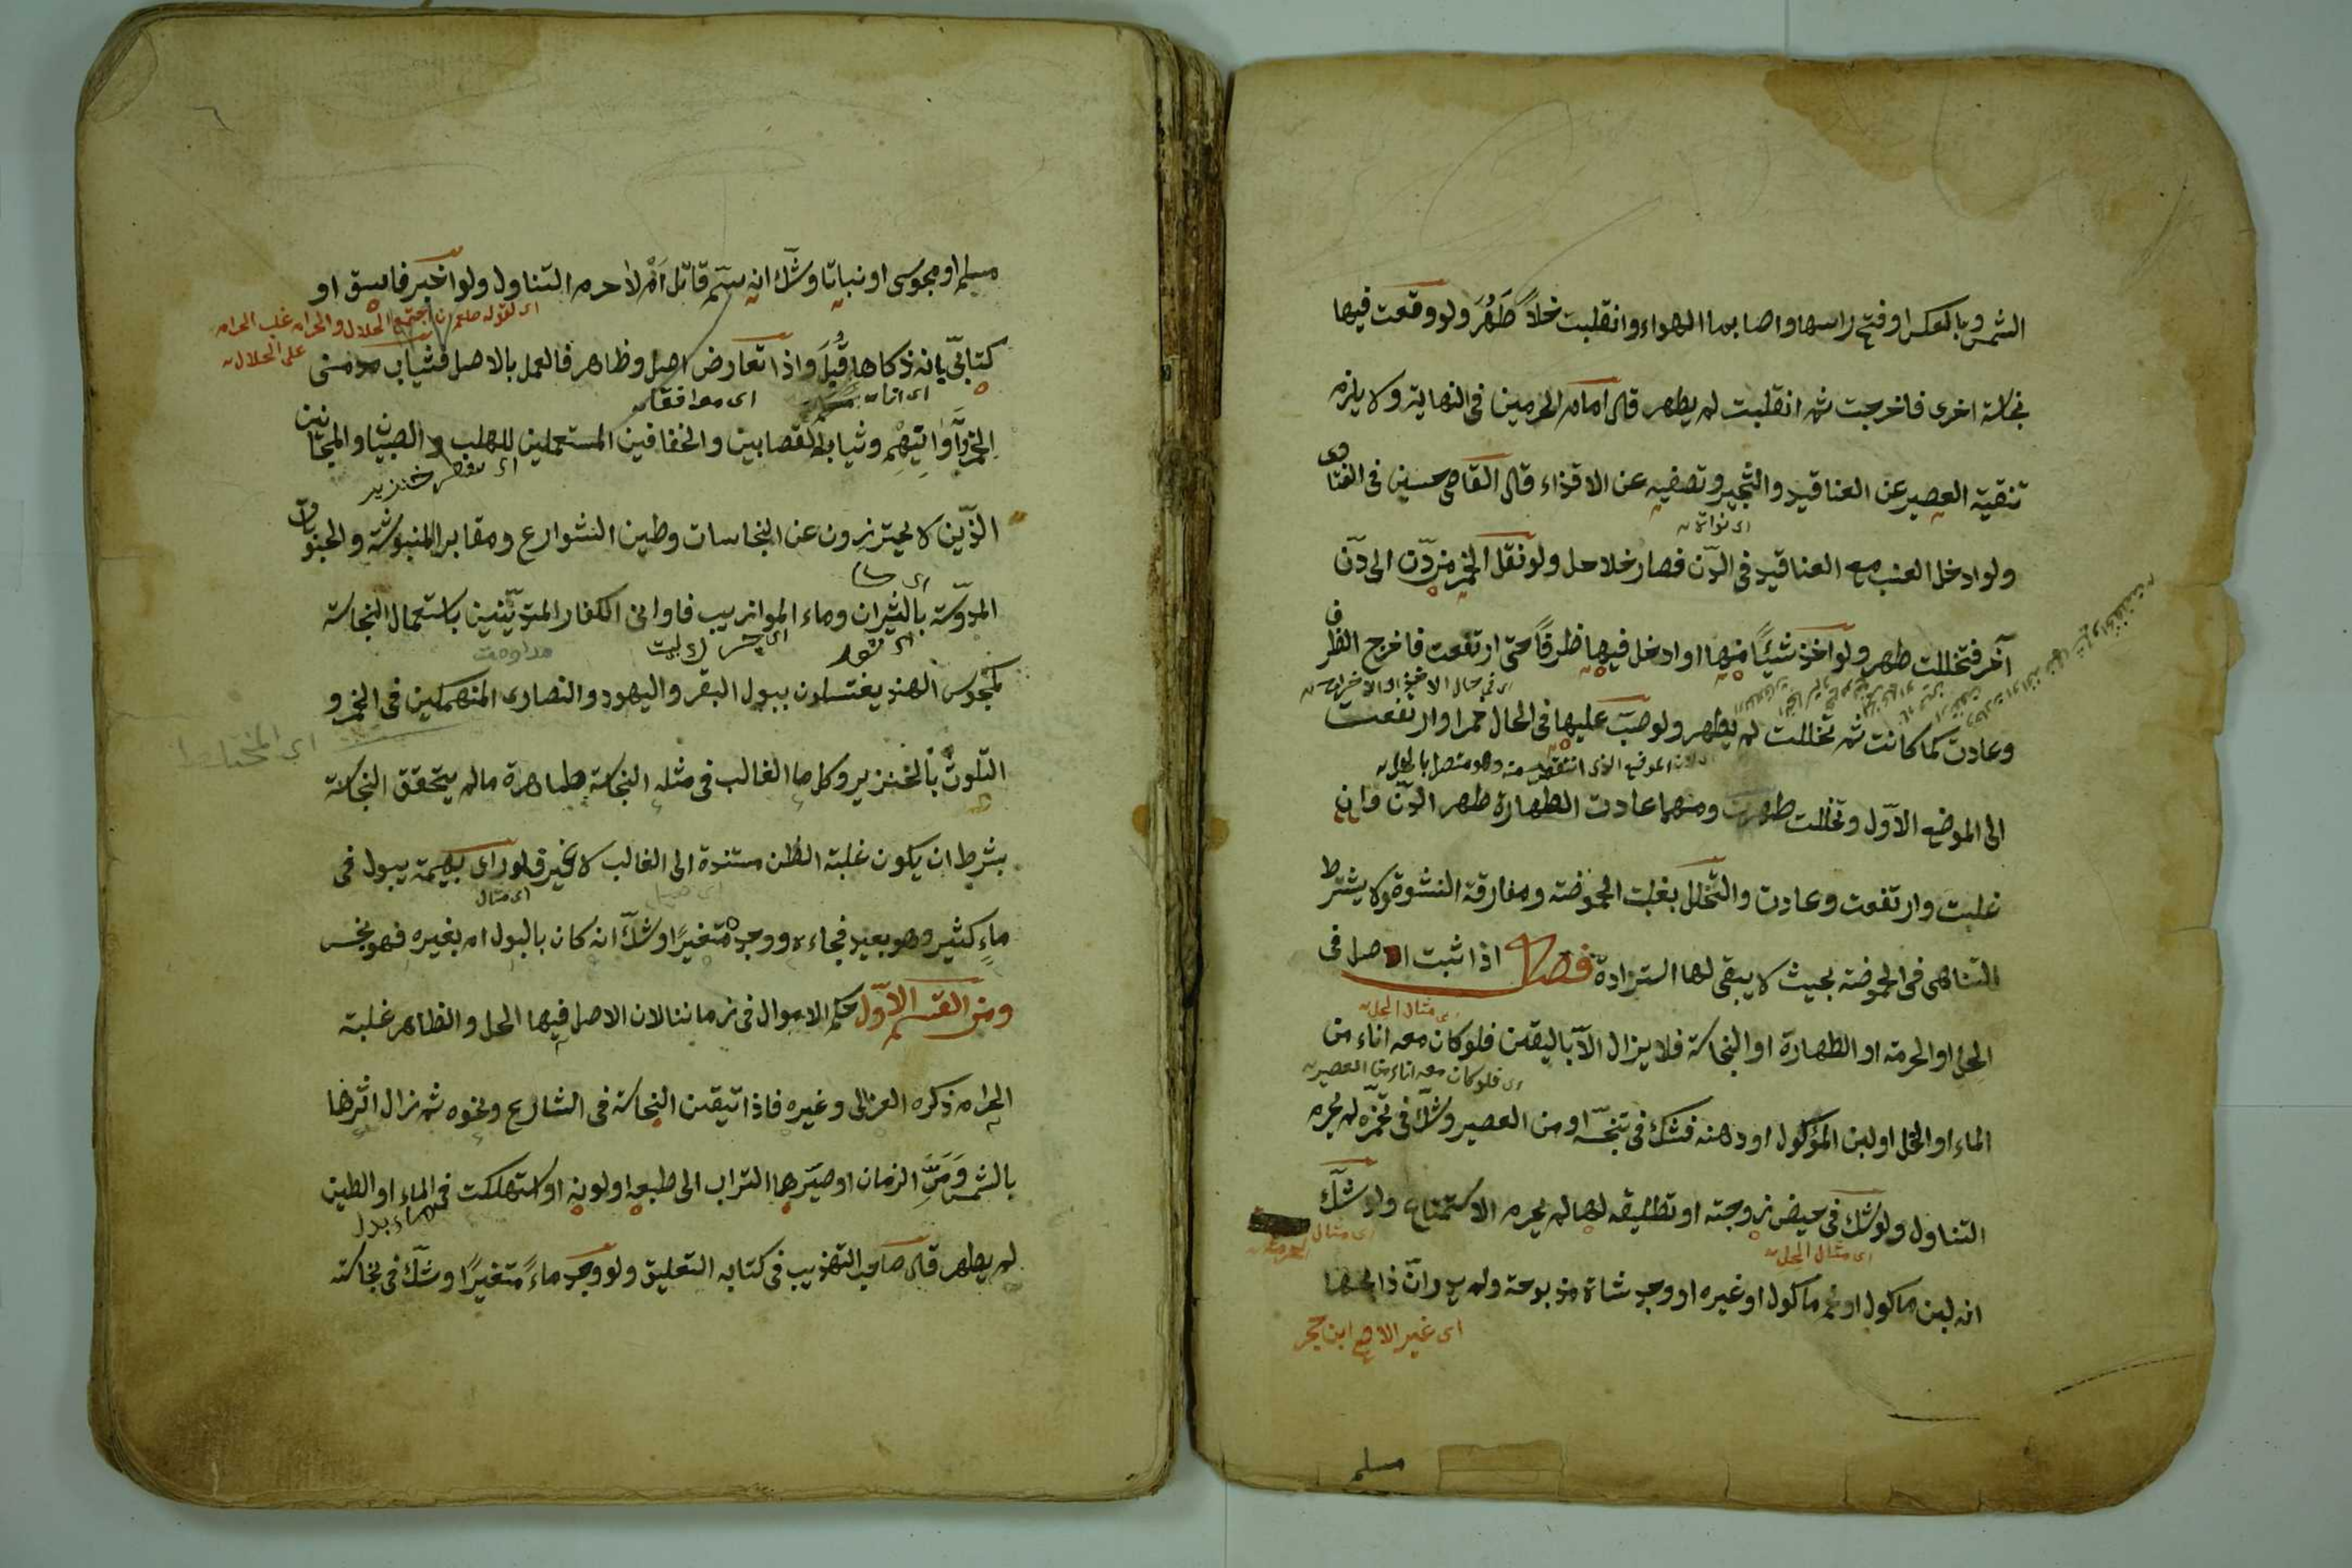 الشمس وبالعكس او فتح راسها واصابها الهواء وانقلبت خلاً طَهُرَ ولو وقعت فيها
نجاسة اخرى فاخرجت ثم انقلبت لم يطهر قال امام الحرمين فى النهاية ولا يلزم
تنقية العصير عن العناقيد والثجير وتصفيه عن الاقذاء قال القاضى حسين فى الفتاوى
اى نواته
ولو ادخل العنب مع العناقيد فى الدّن فصار خلا حل ولو نقل الخمر من دّن الى دّن
آخر فتخللت طهر ولو اخذ شيئاً منها او ادخل فيها ظرفاً حتى ارتفعت فاخرج الظرف
وعادت كما كانت ثم تخللت لم يطهر ولو صبّ عليها فى الحال خمرا وارتفعت
الموضع الذى انتقص منه وهو متصل بالخل
الى الموضع الاوّل وتخللت طهرت ومهما عادت الطهارة طهر الدّن وان
غلبت وارتفعت وعادت والتخلل بغلبت الحموضة ومفارقة النشوة ولا يشترط
التناهى فى الحموضة بحيث لا يبقى لها استزادة فصل اذا ثبت الاصل فى
اى مثال الحل
الحل او الحرمة او الطهارة او النجاسة فلا يزال الّا باليقين فلو كان معه اناء من
اى فلو كان معه اناء من العصير
الماء او الخل او لبن المؤكول او دهنه فشك فى تنجّسه او من العصير وشكّ فى تخمّره لم يحرم
التناول ولو شك فى حيض زوجته او تطليقه لها لم يحرم الاستمتاع ولو شكّ
اى مثال الحل
اى مثال الحرمة
انه لبن ماكول او لحم ماكول او غيره او وجد شاة مذبوحة ولم يدر انّ ذابحها
اى غير الاصح ابن حجر
مسلم
مسلم او مجوسى او نباتا وشك انه سمّ قاتل أم لا حرم التناول ولو اخبر فاسق او
اى لقوله صلعم ان اجتمع الحلال والحرام غلب الحرام
على الحلال
كتابىّ بانه ذكاها قُبِلَ واذا تعارض اصل وظاهر فالعمل بالاصل فثياب مدمنى
الخمر وَأوَانِيهِم وثياب القصابين والخفافين المستعملين للهلب والصبيان والمجانين
اى خنزير
الذّين لا يحترزون عن النجاسات وطين الشوارع ومقابر المنبوشة والحبوبات
المدوّسة بالثيران وماء الموازيب فاوانى الكفار المتديّنين باستعمال النجاسة
مداومت
كمجوس الهند يغتسلون ببول البقر واليهود والنصارى المنهمكين فى الخمر و
التلوّث بالخنزير وكل ما الغالب فى مثله النجاسة طاهرة ما لم يتحقق النجاسة
بشرط ان يكون غلبة الظن مستندة الى الغالب لا غير فلو راى بهيمة يبول فى
اى مثال
ماءٍ كثير وهو بعيد فجاءه ووجده متغيرًا وشكّ انه كان بالبول ام بغيره فهو نجس
ومن القسم الاوّل حكم الاموال فى زماننا لان الاصل فيها الحل والظاهر غلبة
الحرام ذكره الغزالى وغيره فاذا تيقن النجاسة فى الشارع ونحوه ثم زال اثرها
بالشمس وَمَرِّ الزمان او صيّرها التراب الى طبعه او لونه او استهلكت فى الماء او الطين
لم يطهر قال صاحب التهذيب فى كتابه التعليق ولو وجد ماءً متغيرًا وشكّ فى نجاسته